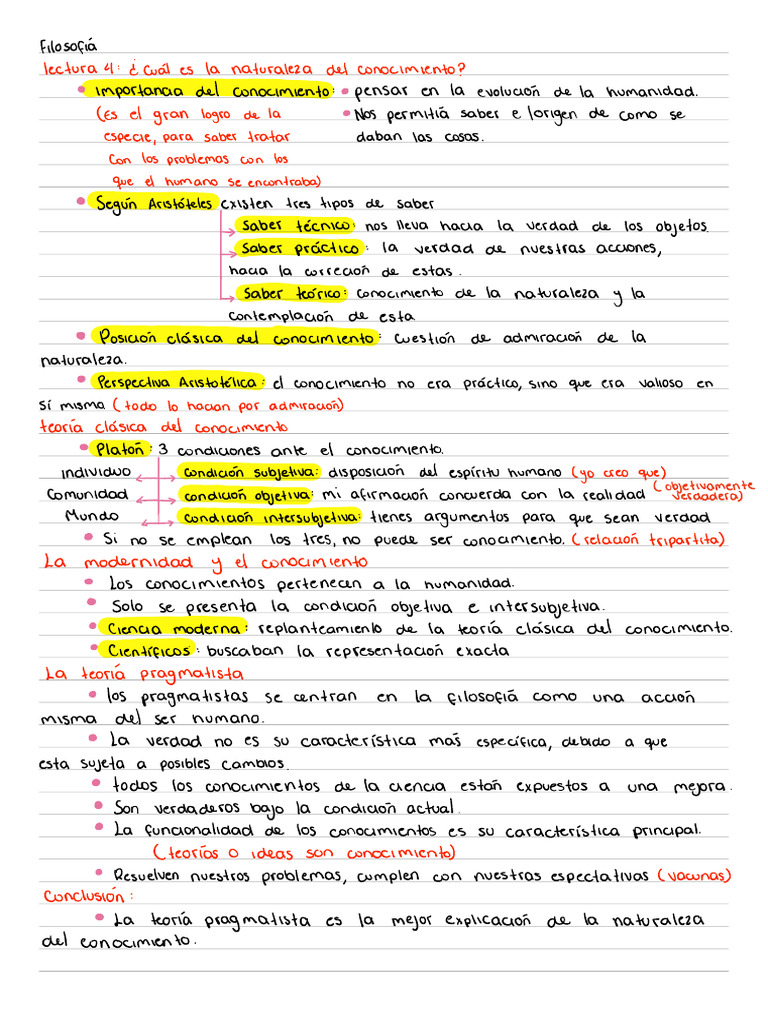 Filosofiá
lectura 4: ¿Cuál es la naturaleza del conocimiento?
• Importancia del conocimiento: • pensar en la evolución de la humanidad.
(Es el gran logro de la • Nos permitiá saber e lorigen de como se
especie, para saber tratar daban las cosas.
Con los problemas con los
que el humano se encontraba)
• Según Aristóteles existen tres tipos de saber
Saber técnico: nos lleva hacia la verdad de los objetos.
Saber práctico: la verdad de nuestras acciones,
hacia la correción de estas.
Saber teórico: conocimiento de la naturaleza y la
contemplación de esta
• Posición clásica del conocimiento: cuestión de admiración de la
naturaleza.
• Perspectiva Aristotélica: el conocimiento no era práctico, sino que era valioso en
sí misma (todo lo hacian por admiración)
teoría clásica del conocimiento
• Platón: 3 condiciones ante el conocimiento.
Individuo condición subjetiva: disposición del espíritu humano (yo creo que)
Comunidad condición objetiva: mi afirmación concuerda con la realidad (objetivamente verdadera)
Mundo condición intersubjetiva: tienes argumentos para que sean verdad
• Si no se emplean los tres, no puede ser conocimiento. (relación tripartita)
La modernidad y el conocimiento
• Los conocimientos pertenecen a la humanidad.
• Solo se presenta la condición objetiva e intersubjetiva.
• Ciencia moderna: replanteamiento de la teoría clásica del conocimiento.
• Científicos: buscaban la representación exacta
La teoría pragmatista
• los pragmatistas se centran en la filosofiá como una acción
misma del ser humano.
• La verdad no es su característica más específica, debido a que
esta sujeta a posibles cambios.
• todos los conocimientos de la ciencia están expuestos a una mejora.
• Son verdaderos bajo la condición actual.
• La funcionalidad de los conocimientos es su característica principal.
(teoriás o ideas son conocimiento)
• Resuelven nuestros problemas, cumplen con nuestras espectativas (vacunas)
Conclusión:
• La teoría pragmatista es la mejor explicación de la naturaleza
del conocimiento.